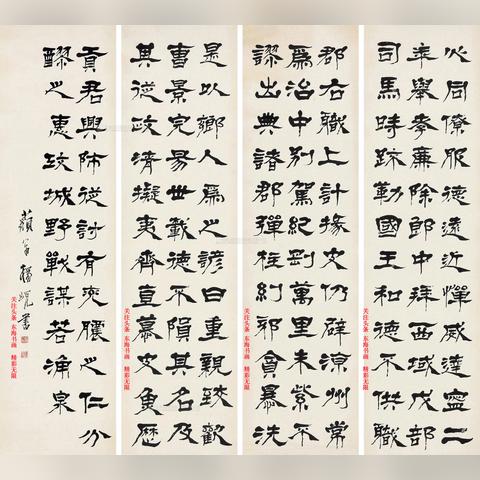 心同僚服德遠近憚威建寧二
年舉孝廉除郎中拜西域戊部
司馬時疏勒國王和德不供職
郡右職上計掾史仍辟涼州常
為治中別駕紀綱萬里朱紫不
謬出典諸郡彈枉糾邪貪暴洗
是以鄉人為之諺曰重親致歡
曹景完易世載德不隕其名及
其從政清擬夷齊直慕史魚歷
貢君興師征討有兗膿之仁分
醪之惠攻城野戰謀若涌泉
藐翁楊峴書
关注头条 东海书画 精彩无限
关注头条 东海书画 精彩无限
关注头条 东海书画 精彩无限
关注头条 东海书画 精彩无限